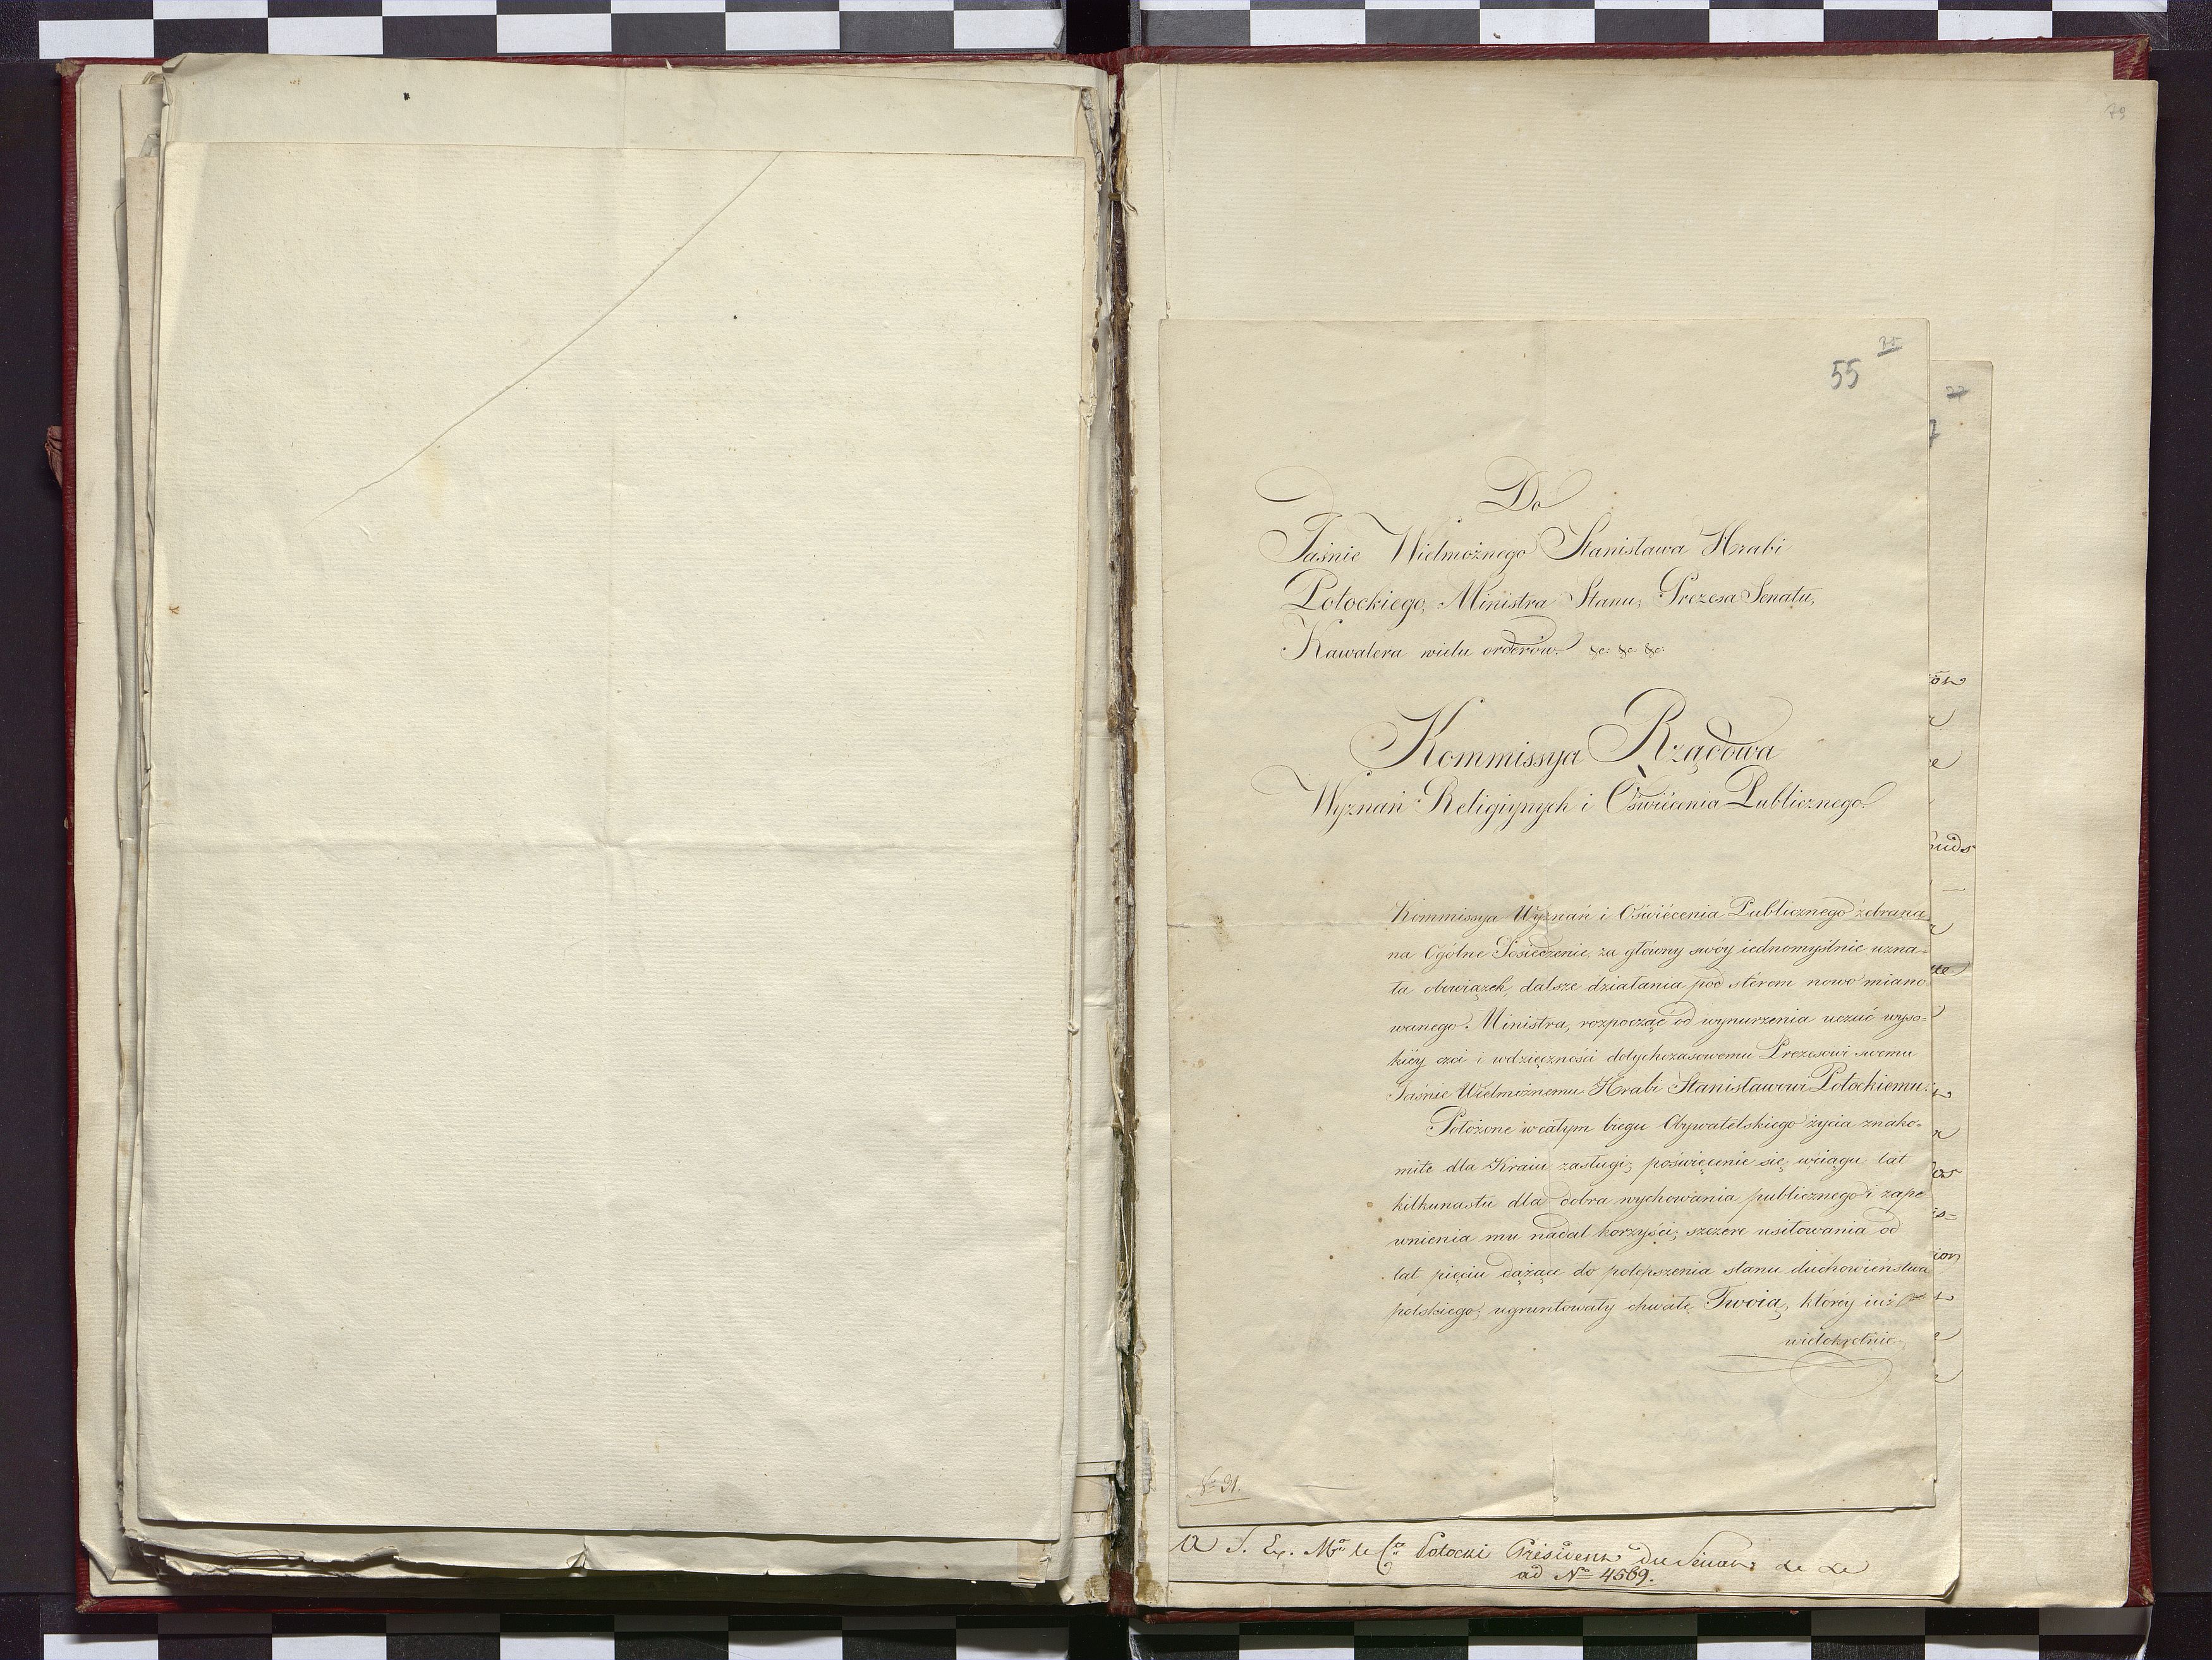 79
75
55
77
Do
Jaśnie Wielmożnego Stanisława Hrabi
Potockiego, Ministra Stanu, Prezesa Senatu,
Kawalera wielu orderów. &c: &c: &c:
Kommissya Rządowa
Wyznań Religiynych i Oświécenia Publicznego.
Kommissya Wyznań i Oświécenia Publicznego zebrana
na Ogólne Posiedzenie, za główny swóy iednomyślnie uzna=
ła obowiązek, dalsze działania pod stérem nowo miano
wanego Ministra, rozpocząć od wynurzenia uczuć wyso=
kiéy czci i wdzięczności dotychczasowemu Prezesowi swemu
Jaśnie Wielmożnemu Hrabi Stanisławowi Potockiemu.
Położone w całym biegu Obywatelskiego życia znako=
mite dla Kraiu zasługi; poświęcenie się wciągu lat
kilkunastu dla dobra wychowania publicznego i zape
wnienia mu nadal korzyści; szczere usiłowania od
lat pięciu dążące do polepszenia stanu duchowieństwa
polskiego; ugruntowały chwałę Twoią, którey iuż
wielokrotnie
No 31.
A S. Ex. Mr le Cte Potocki Président du Sénat &c &c
ad No 4569.